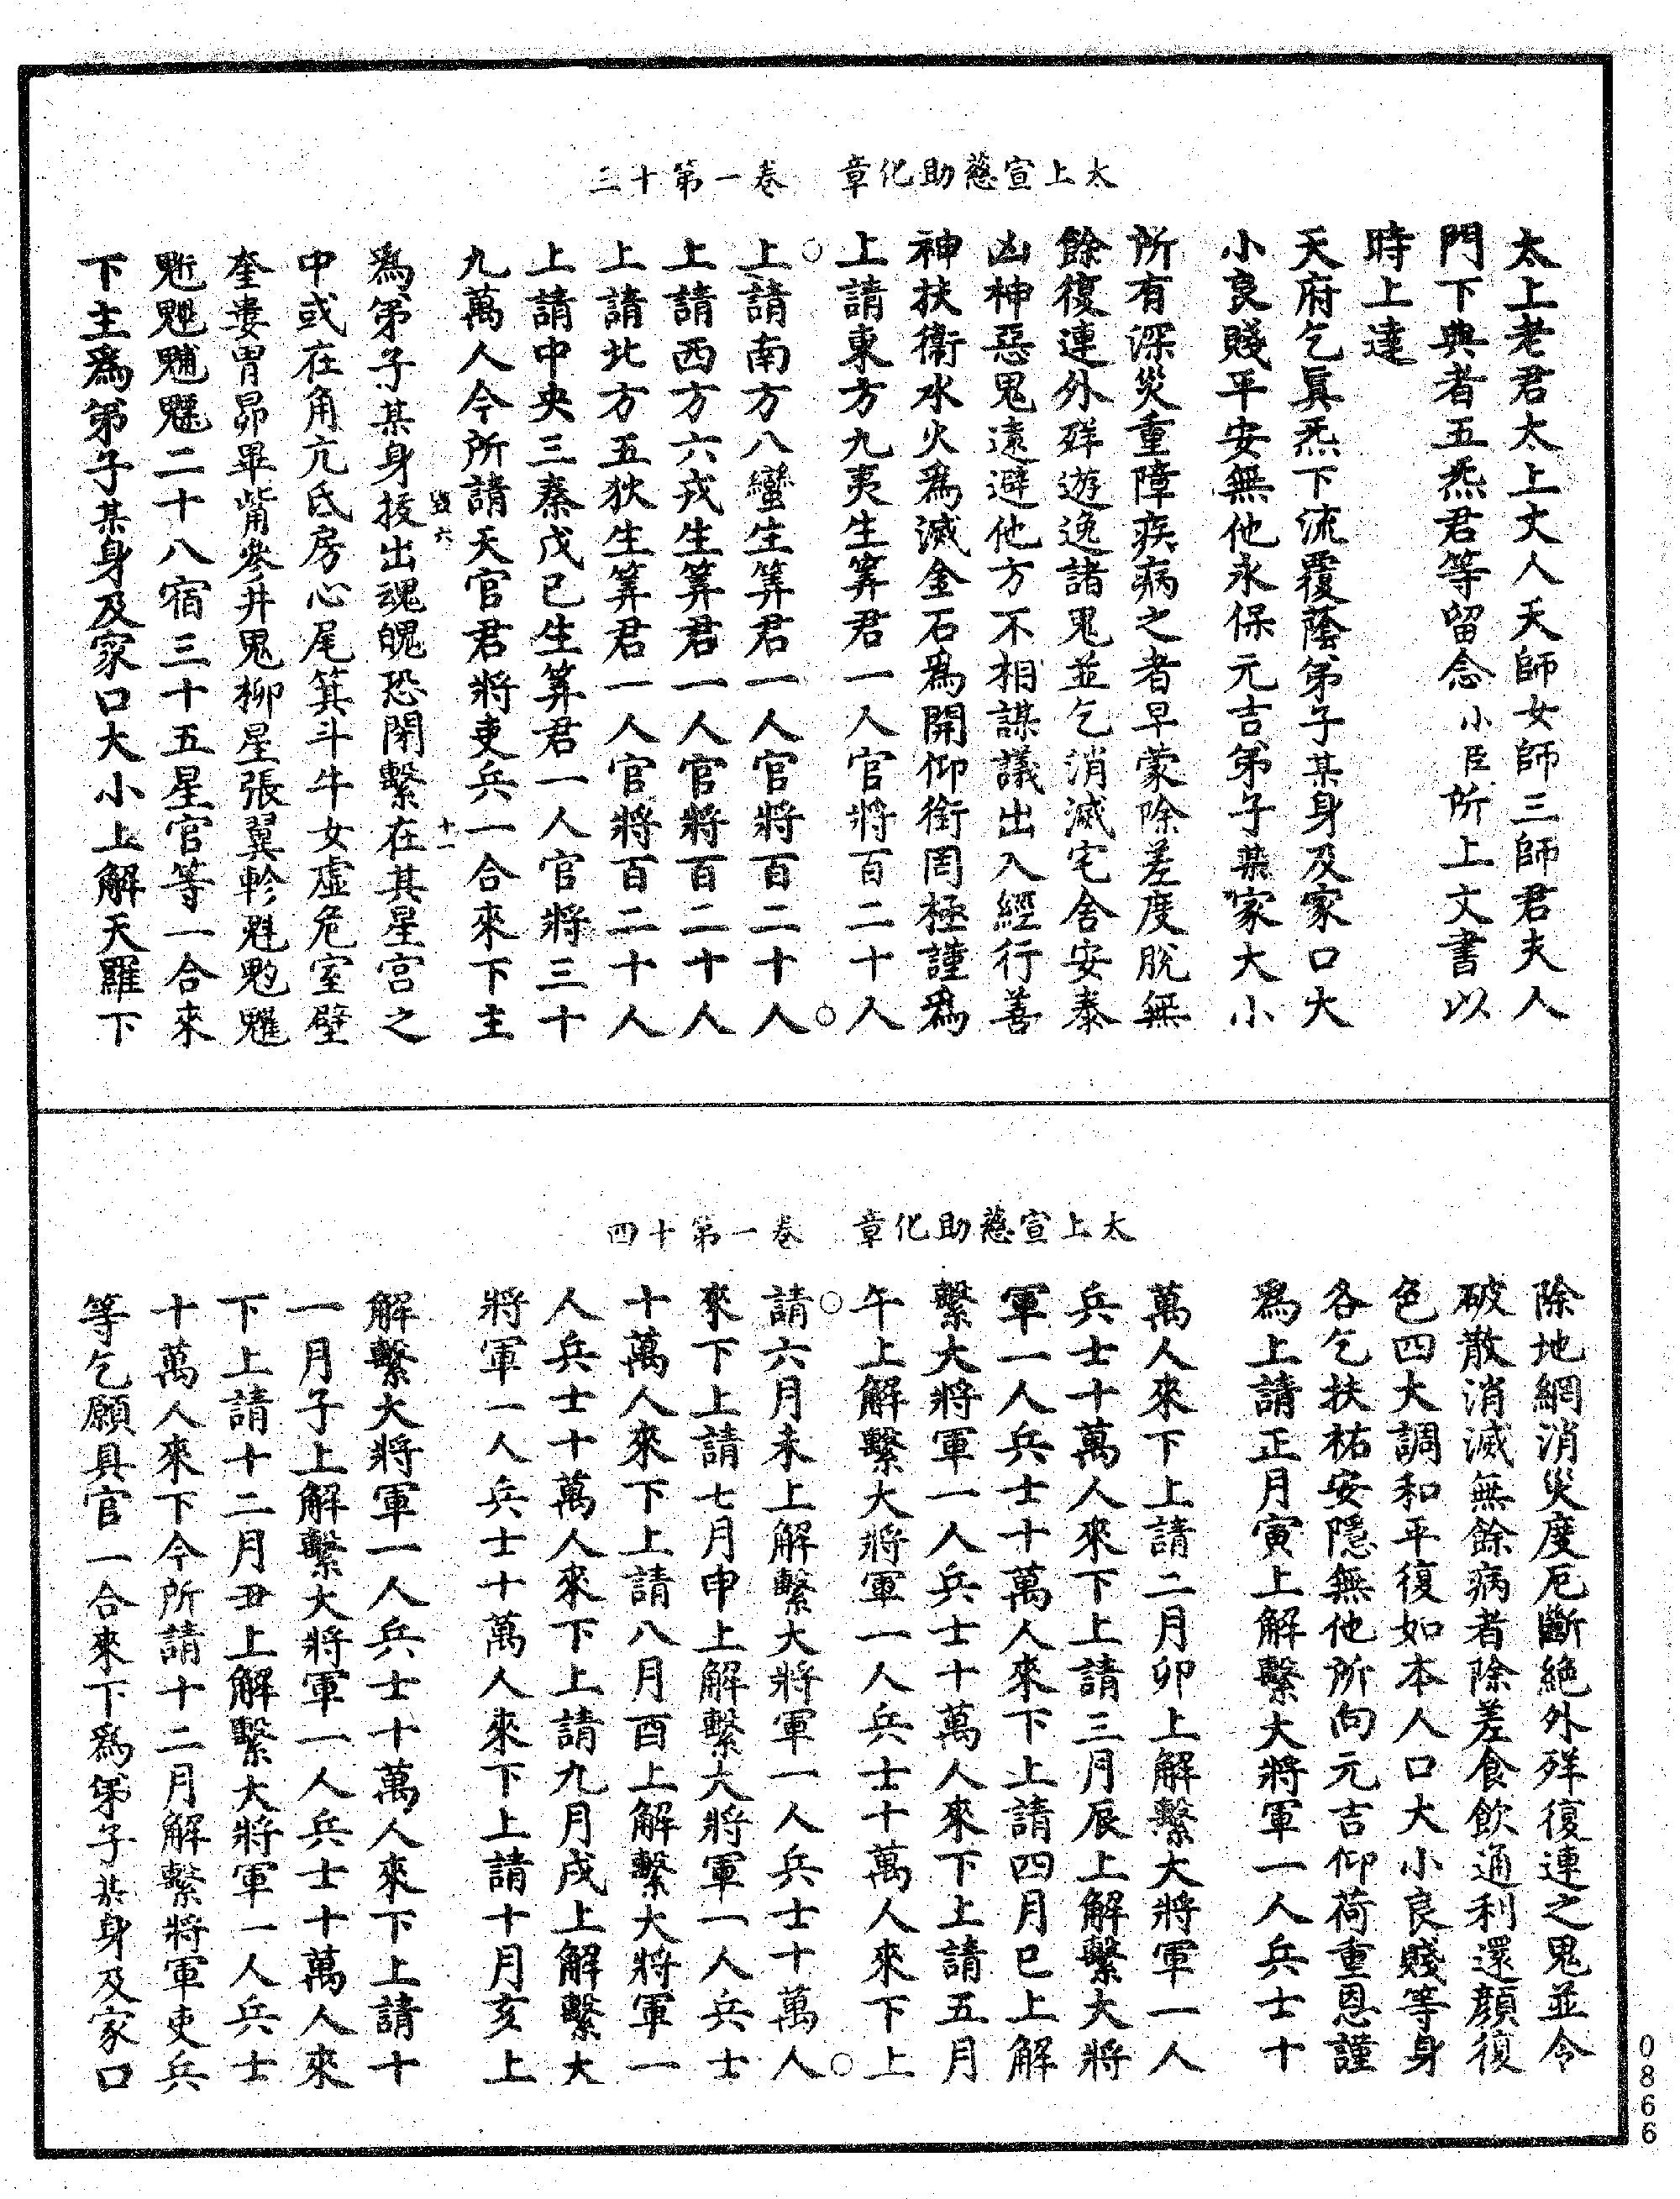 太上宣慈助化章　卷一第十三
太上老君太上丈人天師女師三師君夫人
門下典者五炁君等留念小臣所上文書以
時上達
天府乞眞炁下流覆蔭弟子某身及家口大
小良賤平安無他永保元吉弟子某家大小
所有深災重障疾病之者早蒙除差度脫無
餘復連外殃遊逸諸鬼並乞消滅宅舍安泰
凶神惡鬼遠避他方不相謀議出入經行善
神扶衛水火爲滅金石爲開仰銜罔極謹爲
上請東方九夷生筭君一人官將百二十人
上請南方八蠻生筭君一人官將百二十人
上請西方六戎生筭君一人官將百二十人
上請北方五狄生筭君一人官將百二十人
上請中央三秦戊己生筭君一人官將三十
九萬人今所請天官君將吏兵一合來下主
六　十一
爲弟子某身拔出魂魄恐閉繫在其星宮之
中或在角亢氐房心尾箕斗牛女虛危室壁
奎婁胃昴畢觜參井鬼柳星張翼軫魁𩲃䰢
魓䰣魒二十八宿三十五星官等一合來
下主爲弟子某身及家口大小上解天羅下
太上宣慈助化章　卷一第十四
除地網消災度厄斷絕外殃復連之鬼並令
破散消滅無餘病者除差食飲通利還顏復
色四大調和平復如本人口大小良賤等身
各乞扶祐安隱無他所向元吉仰荷重恩謹
爲上請正月寅上解繫大將軍一人兵士十
萬人來下上請二月卯上解繫大將軍一人
兵士十萬人來下上請三月辰上解繫大將
軍一人兵士十萬人來下上請四月巳上解
繫大將軍一人兵士十萬人來下上請五月
午上解繫大將軍一人兵士十萬人來下上
請六月未上解繫大將軍一人兵士十萬人
來下上請七月申上解繫大將軍一人兵士
十萬人來下上請八月酉上解繫大將軍一
人兵士十萬人來下上請九月戌上解繫大
將軍一人兵士十萬人來下上請十月亥上
解繫大將軍一人兵士十萬人來下上請十
一月子上解繫大將軍一人兵士十萬人來
下上請十二月丑上解繫大將軍一人兵士
十萬人來下今所請十二月解繫將軍吏兵
等乞願具官一合來下爲弟子某身及家口
0866